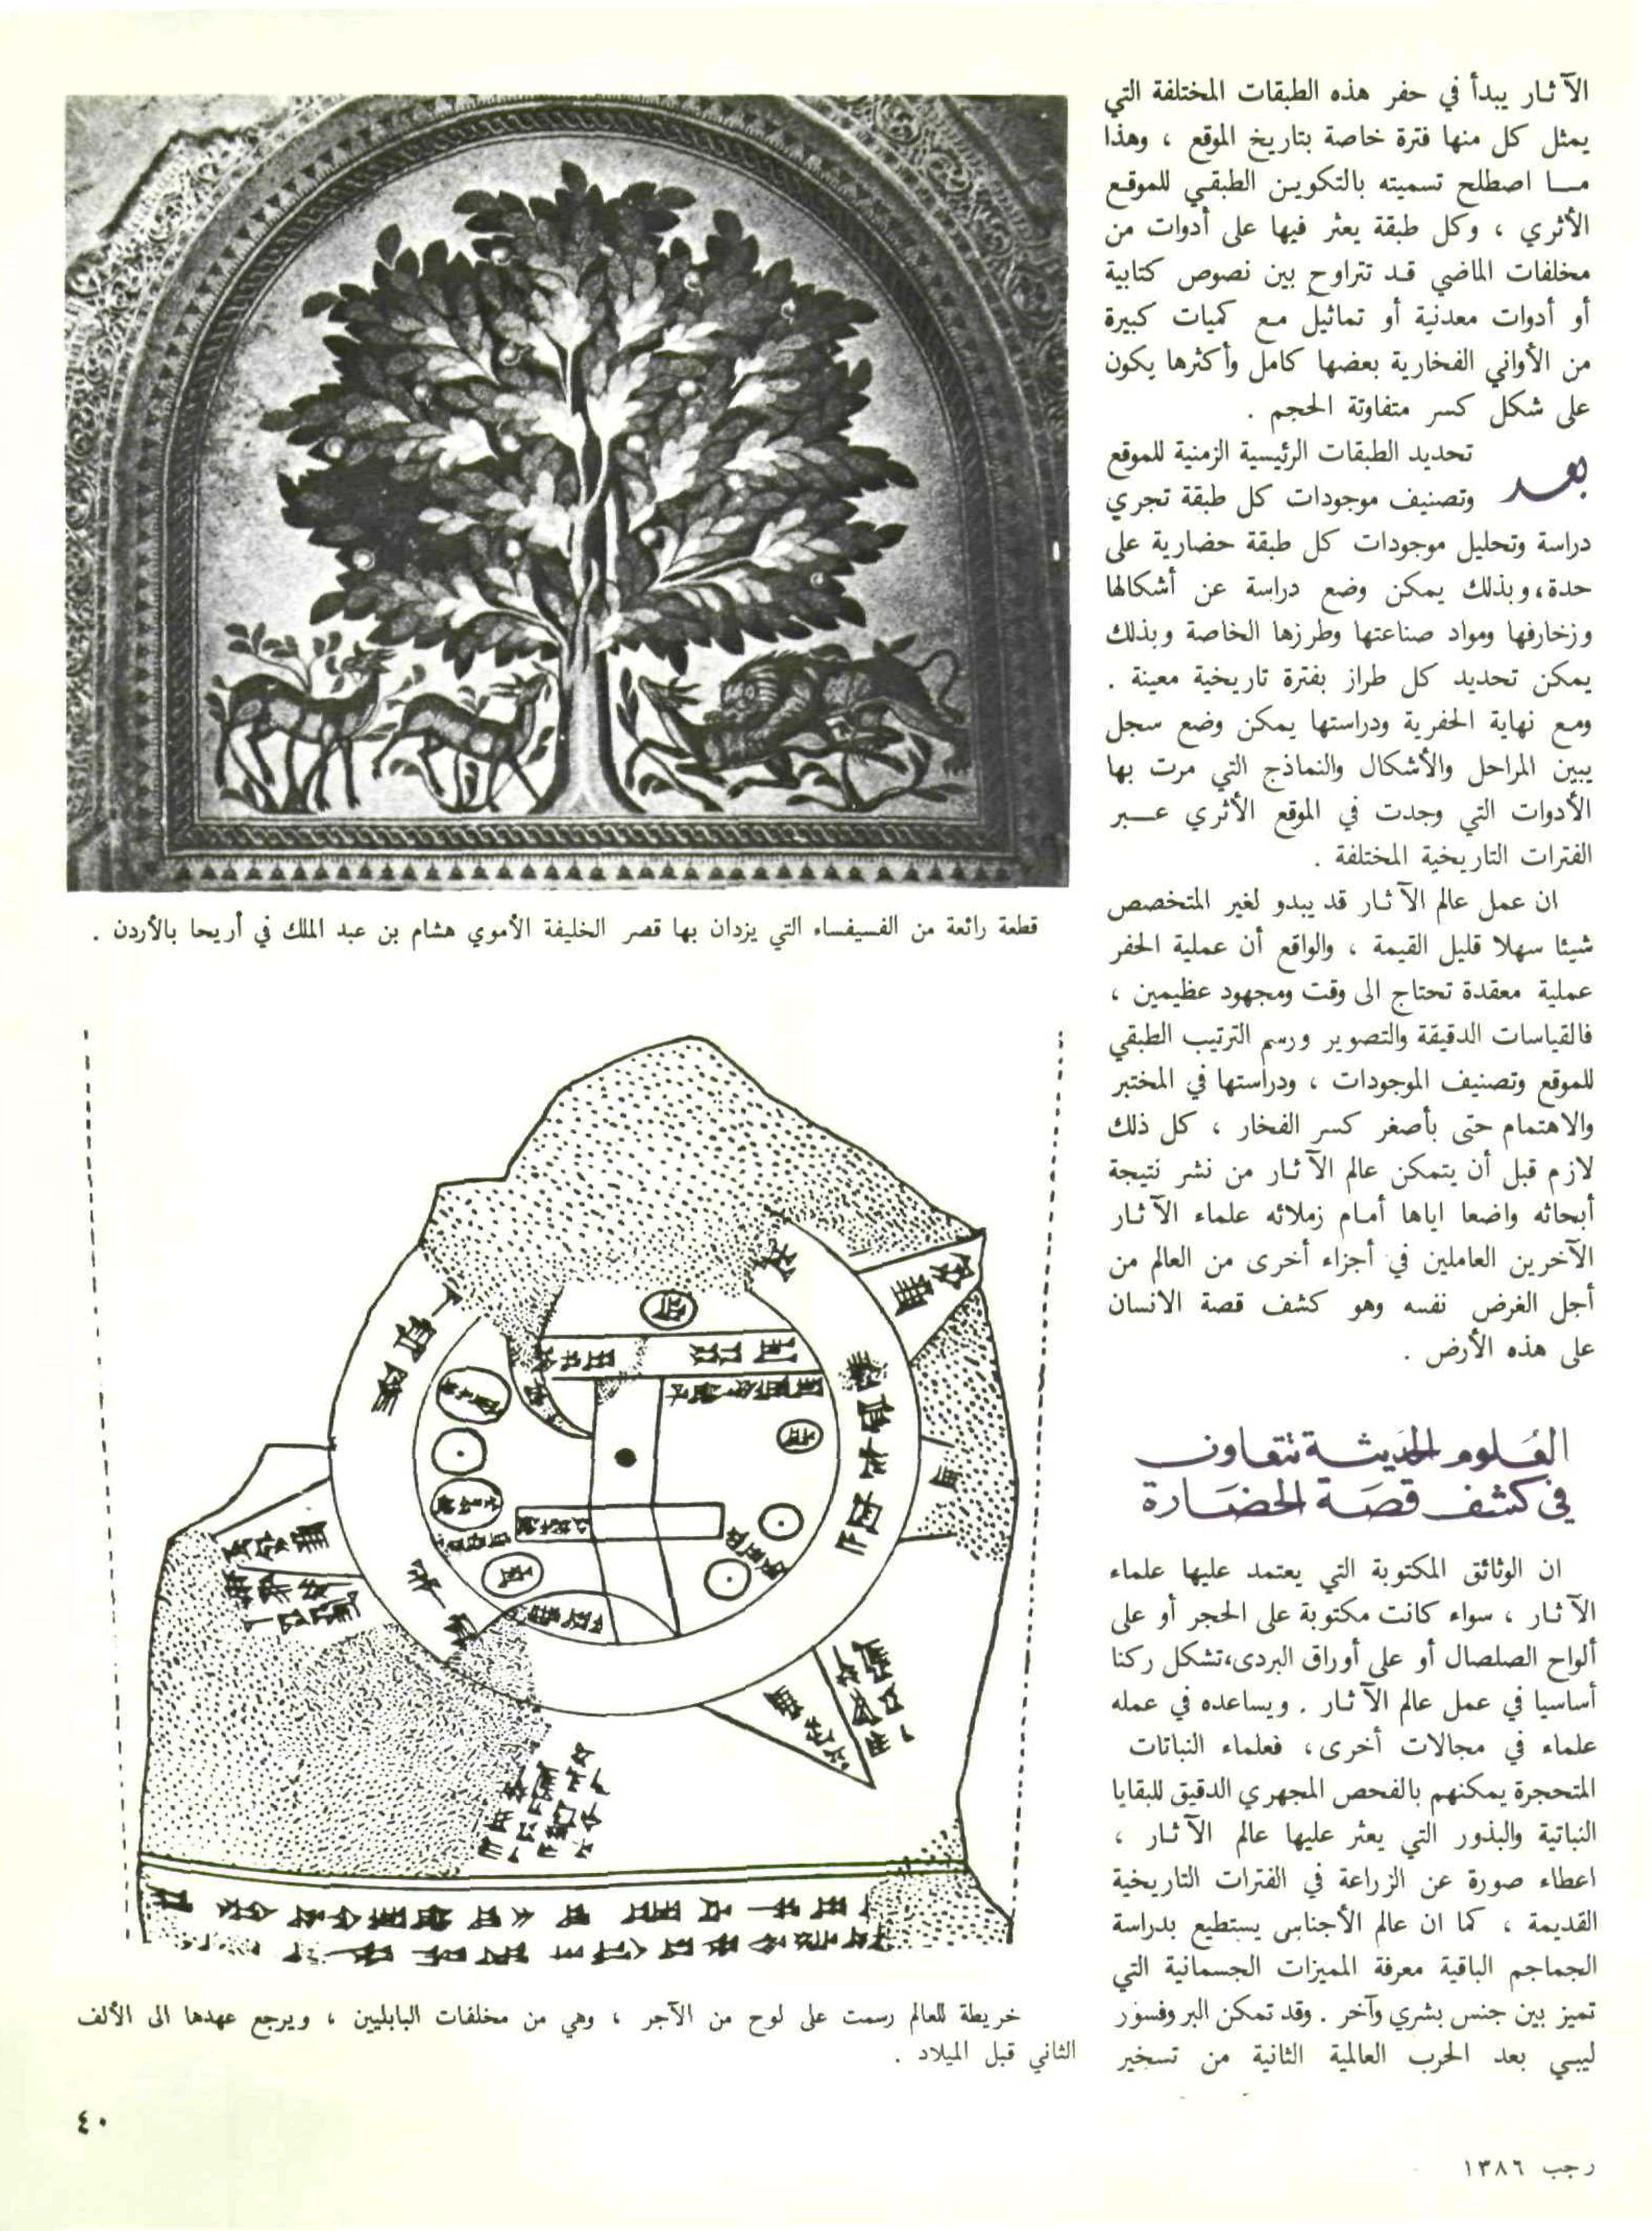 الآثار يبدأ في حفر هذه الطبقات المختلفة التي
يمثل كل منها فترة خاصة بتاريخ الموقع ، وهذا
مـــا اصطلح تسميته بالتكوين الطبقي للموقع
الأثري ، وكل طبقة يعثر فيها على أدوات من
مخلفات الماضي قد تتراوح بين نصوص كتابية
أو أدوات معدنية أو تماثيل مع كميات كبيرة
من الأواني الفخارية بعضها كامل وأكثرها يكون
على شكل كسر متفاوتة الحجم .
بعد تحديد الطبقات الرئيسية الزمنية للموقع
وتصنيف موجودات كل طبقة تجري
دراسة وتحليل موجودات كل طبقة حضارية على
حدة، وبذلك يمكن وضع دراسة عن أشكالها
وزخارفها ومواد صناعتها وطرزها الخاصة وبذلك
يمكن تحديد كل طراز بفترة تاريخية معينة .
ومع نهاية الحفرية ودراستها يمكن وضع سجل
يبين المراحل والأشكال والنماذج التي مرت بها
الأدوات التي وجدت في الموقع الأثري عـــبر
الفترات التاريخية المختلفة .
ان عمل عالم الآثار قد يبدو لغير المتخصص
شيئا سهلا قليل القيمة ، والواقع أن عملية الحفر
عملية معقدة تحتاج الى وقت ومجهود عظيمين ،
فالقياسات الدقيقة والتصوير ورسم الترتيب الطبقي
للموقع وتصنيف الموجودات ، ودراستها في المختبر
والاهتمام حتى بأصغر كسر الفخار ، كل ذلك
لازم قبل أن يتمكن عالم الآثار من نشر نتيجة
أبحاثه واضعا اياها أمام زملائه علماء الآثار
الآخرين العاملين في أجزاء أخرى من العالم من
أجل الغرض نفسه وهو كشف قصة الانسان
على هذه الأرض .
العُلوم الحَديثة تتعَاون
في كشف قصَة الحضَارة
ان الوثائق المكتوبة التي يعتمد عليها علماء
الآثار ، سواء كانت مكتوبة على الحجر أو على
ألواح الصلصال أو على أوراق البردى، تشكل ركنا
أساسيا في عمل عالم الآثار . ويساعده في عمله
علماء في مجالات أخرى ، فعلماء النباتات
المتحجرة يمكنهم بالفحص المجهري الدقيق للبقايا
النباتية والبذور التي يعثر عليها عالم الآثار ،
اعطاء صورة عن الزراعة في الفترات التاريخية
القديمة ، كما ان عالم الأجناس يستطيع بدراسة
الجماجم الباقية معرفة المميزات الجسمانية التي
تميز بين جنس بشري وآخر . وقد تمكن البروفسور
ليبي بعد الحرب العالمية الثانية من تسخير
قطعة رائعة من الفسيفساء التي يزدان بها قصر الخليفة الأموي هشام بن عبد الملك في أريحا بالأردن .
خريطة للعالم رسمت على لوح من الآجر ، وهي من مخلفات البابليين ، ويرجع عهدها الى الألف
الثاني قبل الميلاد .
٤٠
رجب ١٣٨٦